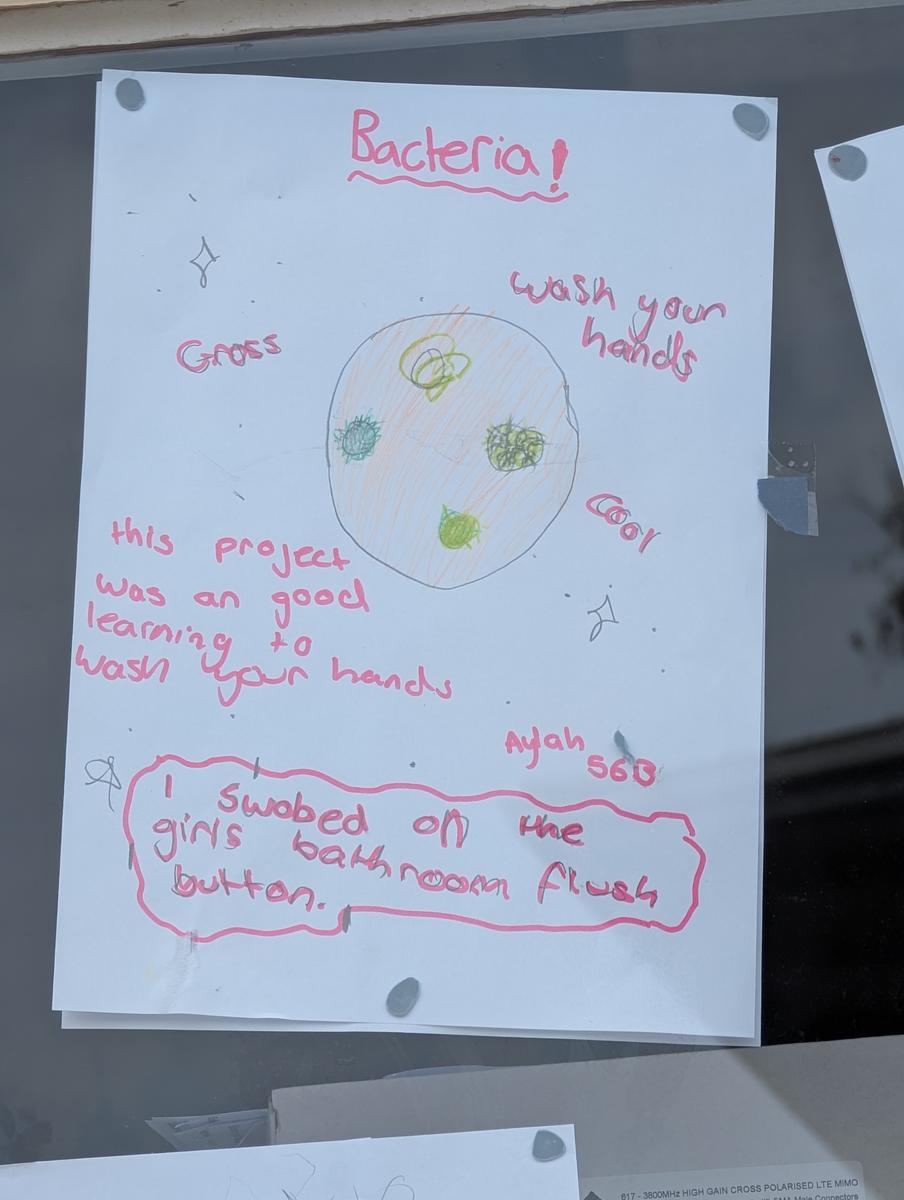 Bacteria!
wash your
hands
Gross
Cool
this project
was an good
learning to
wash your hands
Aylah
56B
I swobed on the
girls bathroom flush
button.
617 - 3800MHz HIGH GAIN CROSS POLARISED LTE MIMO
Male Connectors